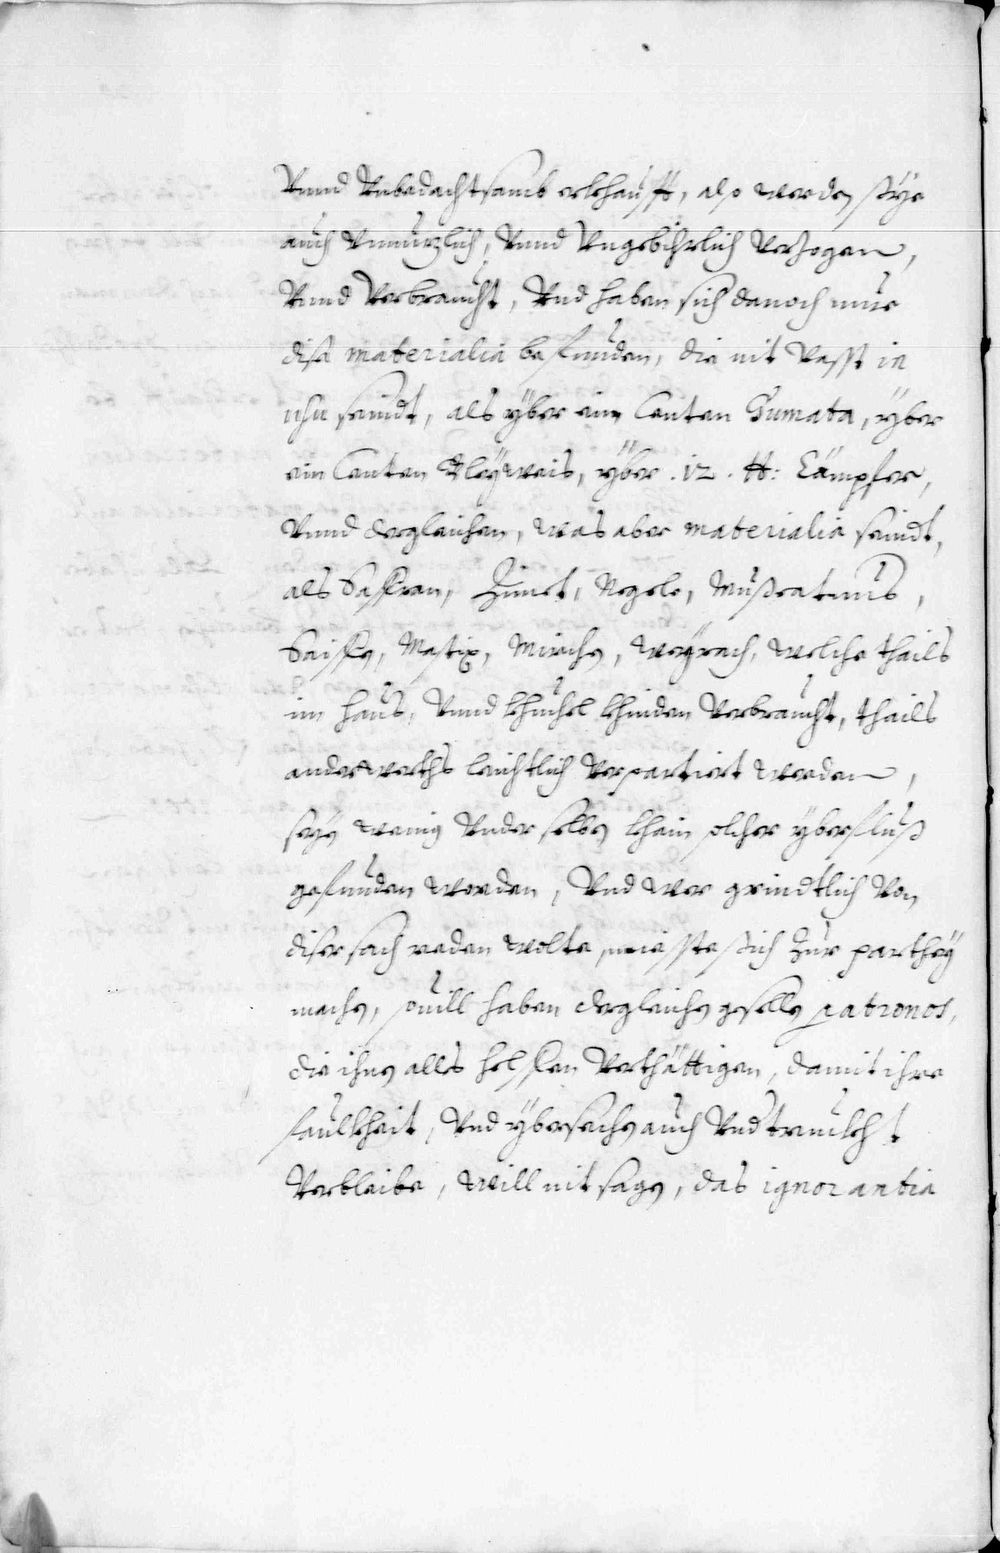 Vnnd Vnbedachtsamb erkhaufft, also werden sÿe
auch Vnnuzlich, Vnnd Vngebihrlich Verzogen,
Vnnd Verbraucht, Vnd haben sich danoch nur
dise materialia befunden, die nit Vasst in
usu seindt, als yber ein Centen Gumata, yber
ein Centen Pleÿweis, yber .12. ℔: Cämpfer,
Vnnd dergleichen, was aber materialia seindt,
als Saffran, Zimet, Negele, Muscatnus,
Saiffen, Mastix, Mirrhen, Weÿrach, welche thails
im haus, Vnnd khuchel khinden Verbraucht, thails
anderwerths leichtlich Verpartiert werden,
seÿen wenig Vnder selben khein solcher yberfluß
gefunden worden, Vnd wer grindtlich Von
diser sach reden wolte, miesste sich zur partheÿ
machen, souill haben dergleichen gesellen patronos,
die ihnen alles helffen Verthättigen, damit ihre
faulkheit, Vnd ybersechen auch Vndtruckht
Verbleibe, will nit sagen, das ignorantia